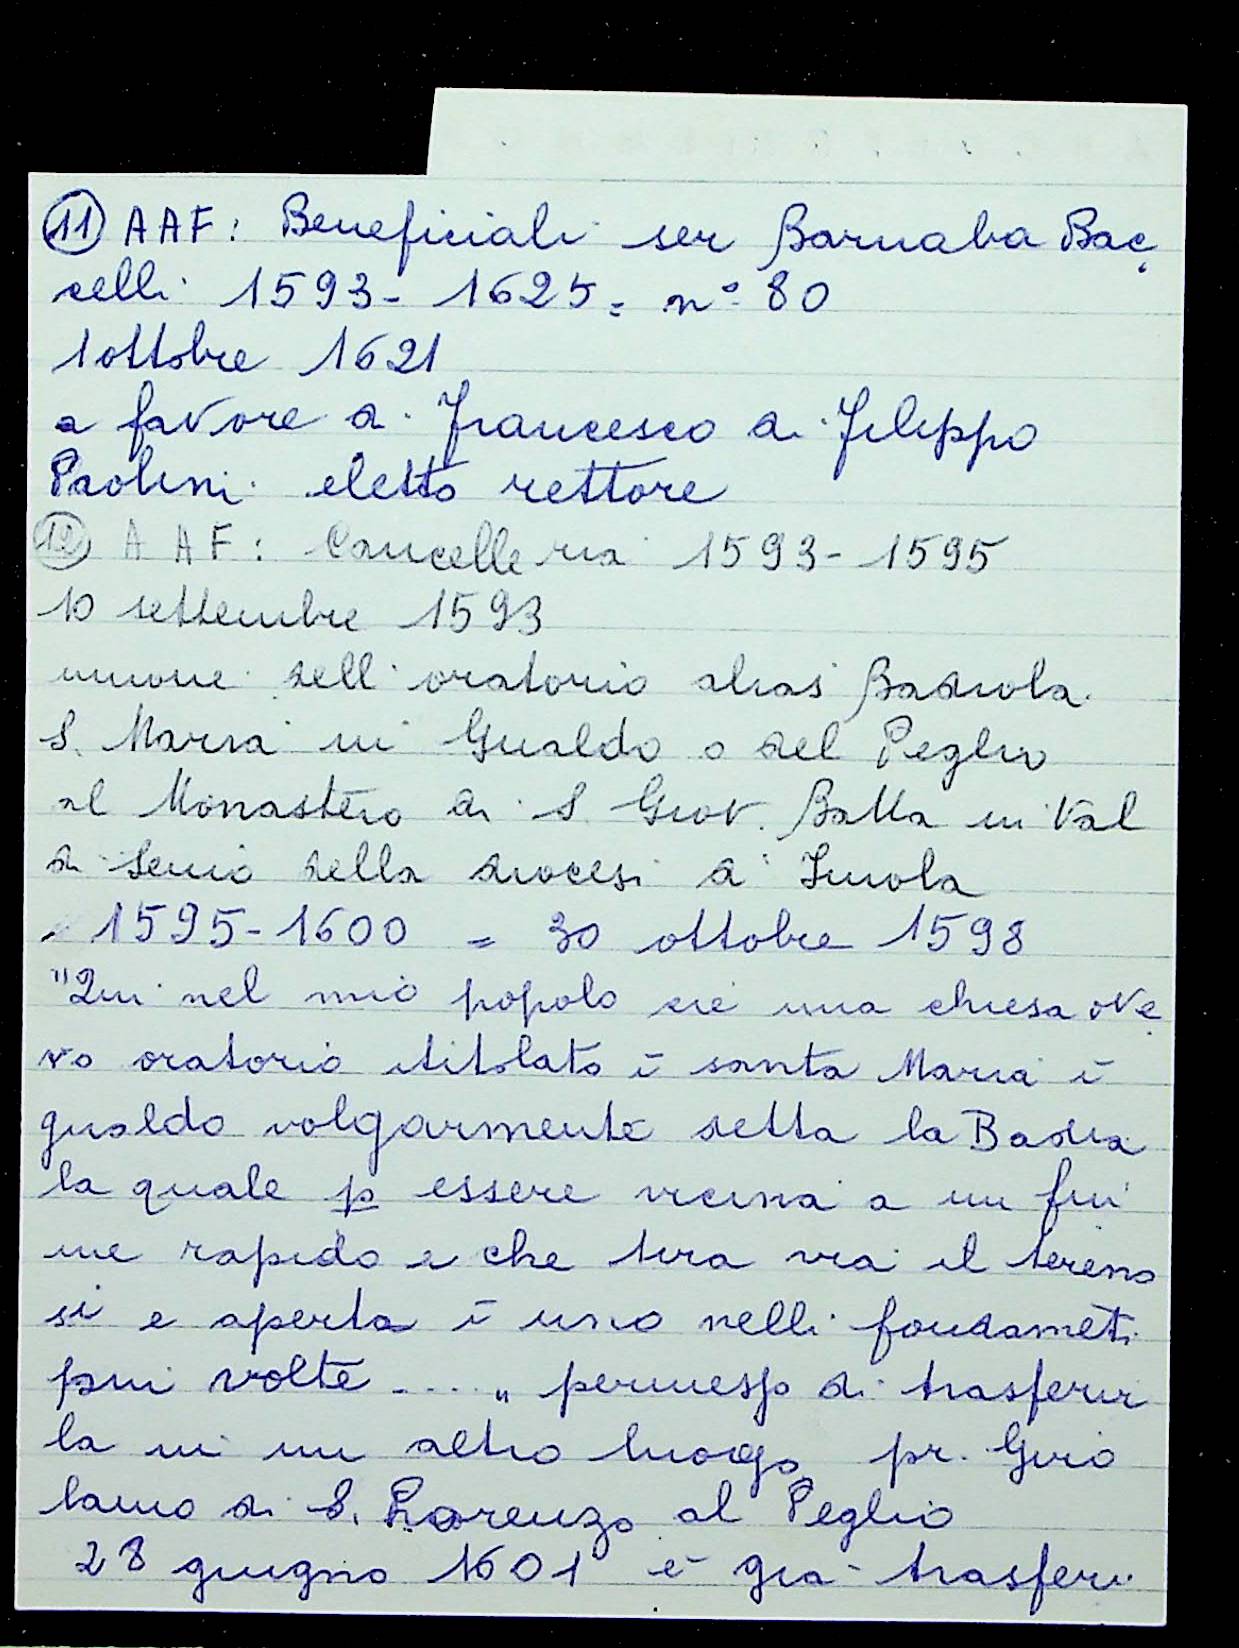 11 AAF: Beneficiali ser Barnaba Bac
celli 1593-1625 = n° 80
1 ottobre 1621
a favore di Francesco di Filippo
Paolini eletto rettore
12 AAF: Cancelleria 1593-1595
10 settembre 1593
unione dell'oratorio alias Badiola
S. Maria in Gualdo o del Peglio
al Monastero di S. Giov. Batta in Val
di Senio della diocesi di Imola
1595-1600 = 30 ottobre 1598
"Qui nel mio popolo cie una chiesa ove
ro oratorio ititolato ĩ santa Maria ĩ
gualdo volgarmente detta la Badia
la quale p essere vicina a un fiu
me rapido e che tira via il tereno
si e aperta ĩ uno nelli fondamẽti
piu volte ...." permesso di trasferir
la in un altro luogo pr. Giro
lamo di S. Lorenzo al Peglio
28 giugno 1601 è già trasferi